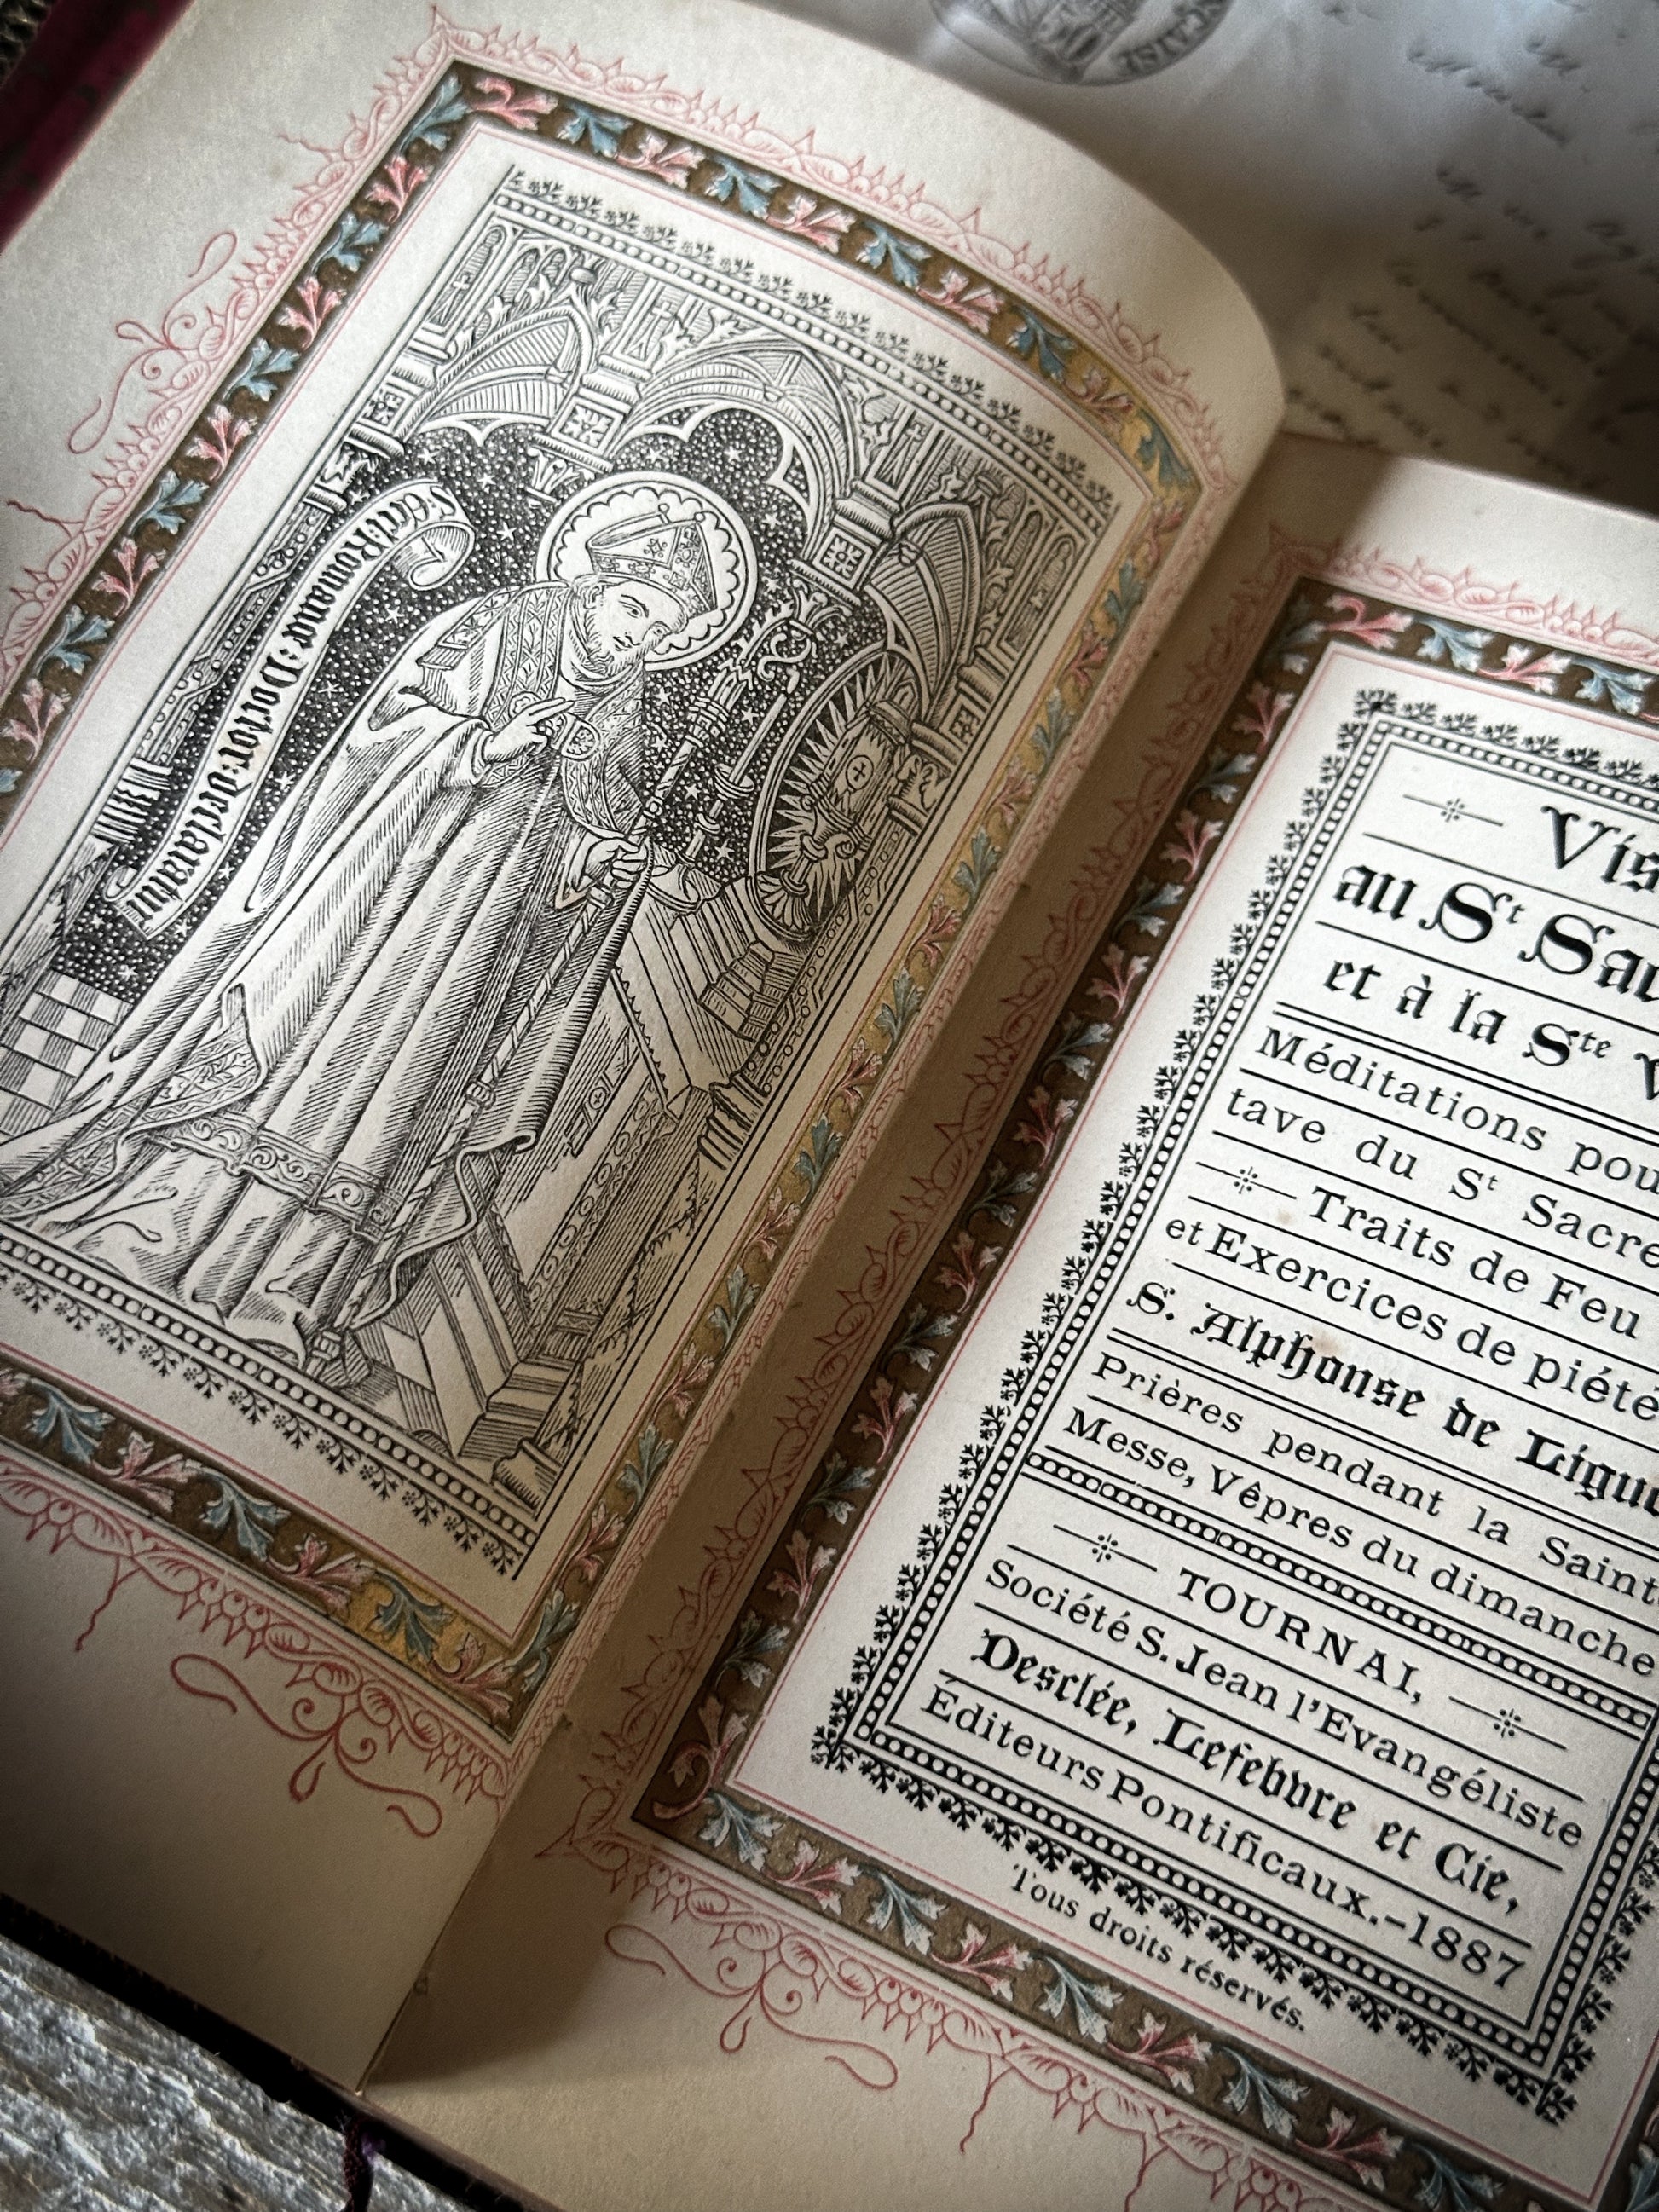 Romanæ : Doctor : declaratur
Vis
au St Sac
et à la Ste V
Méditations pou
tave du St Sacre
Traits de Feu
et Exercices de piété
S. Alphonse de Liguo
Prières pendant la Saint
Messe, Vêpres du dimanche
TOURNAI,
Société S. Jean l'Evangéliste
Desclée, Lefebvre et Cie,
Éditeurs Pontificaux.-1887
Tous droits réservés.